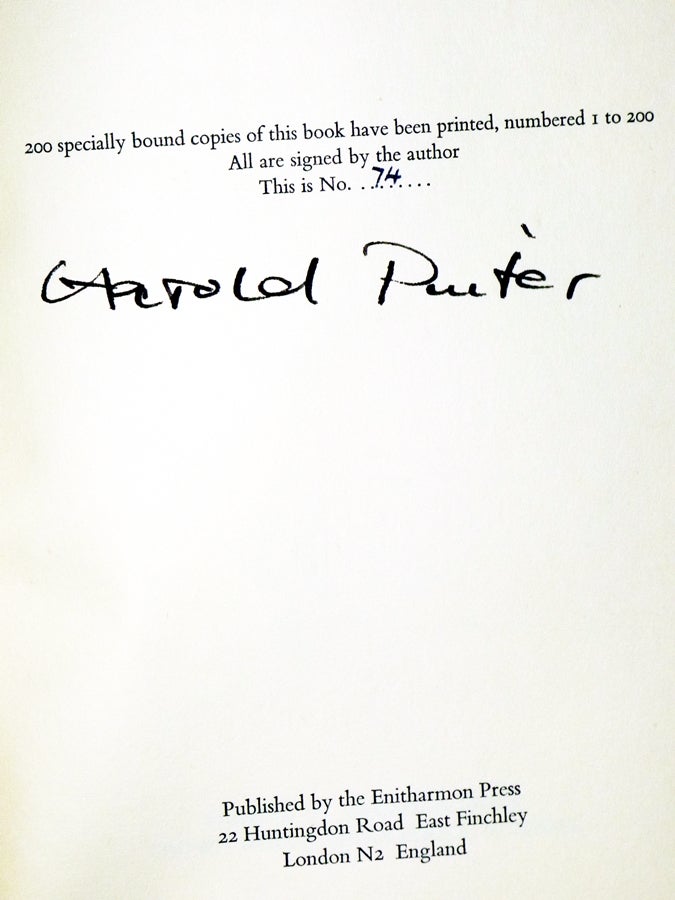 200 specially bound copies of this book have been printed, numbered 1 to 200
All are signed by the author
This is No. ..74.....
Harold Pinter
Published by the Enitharmon Press
22 Huntingdon Road East Finchley
London N2 England